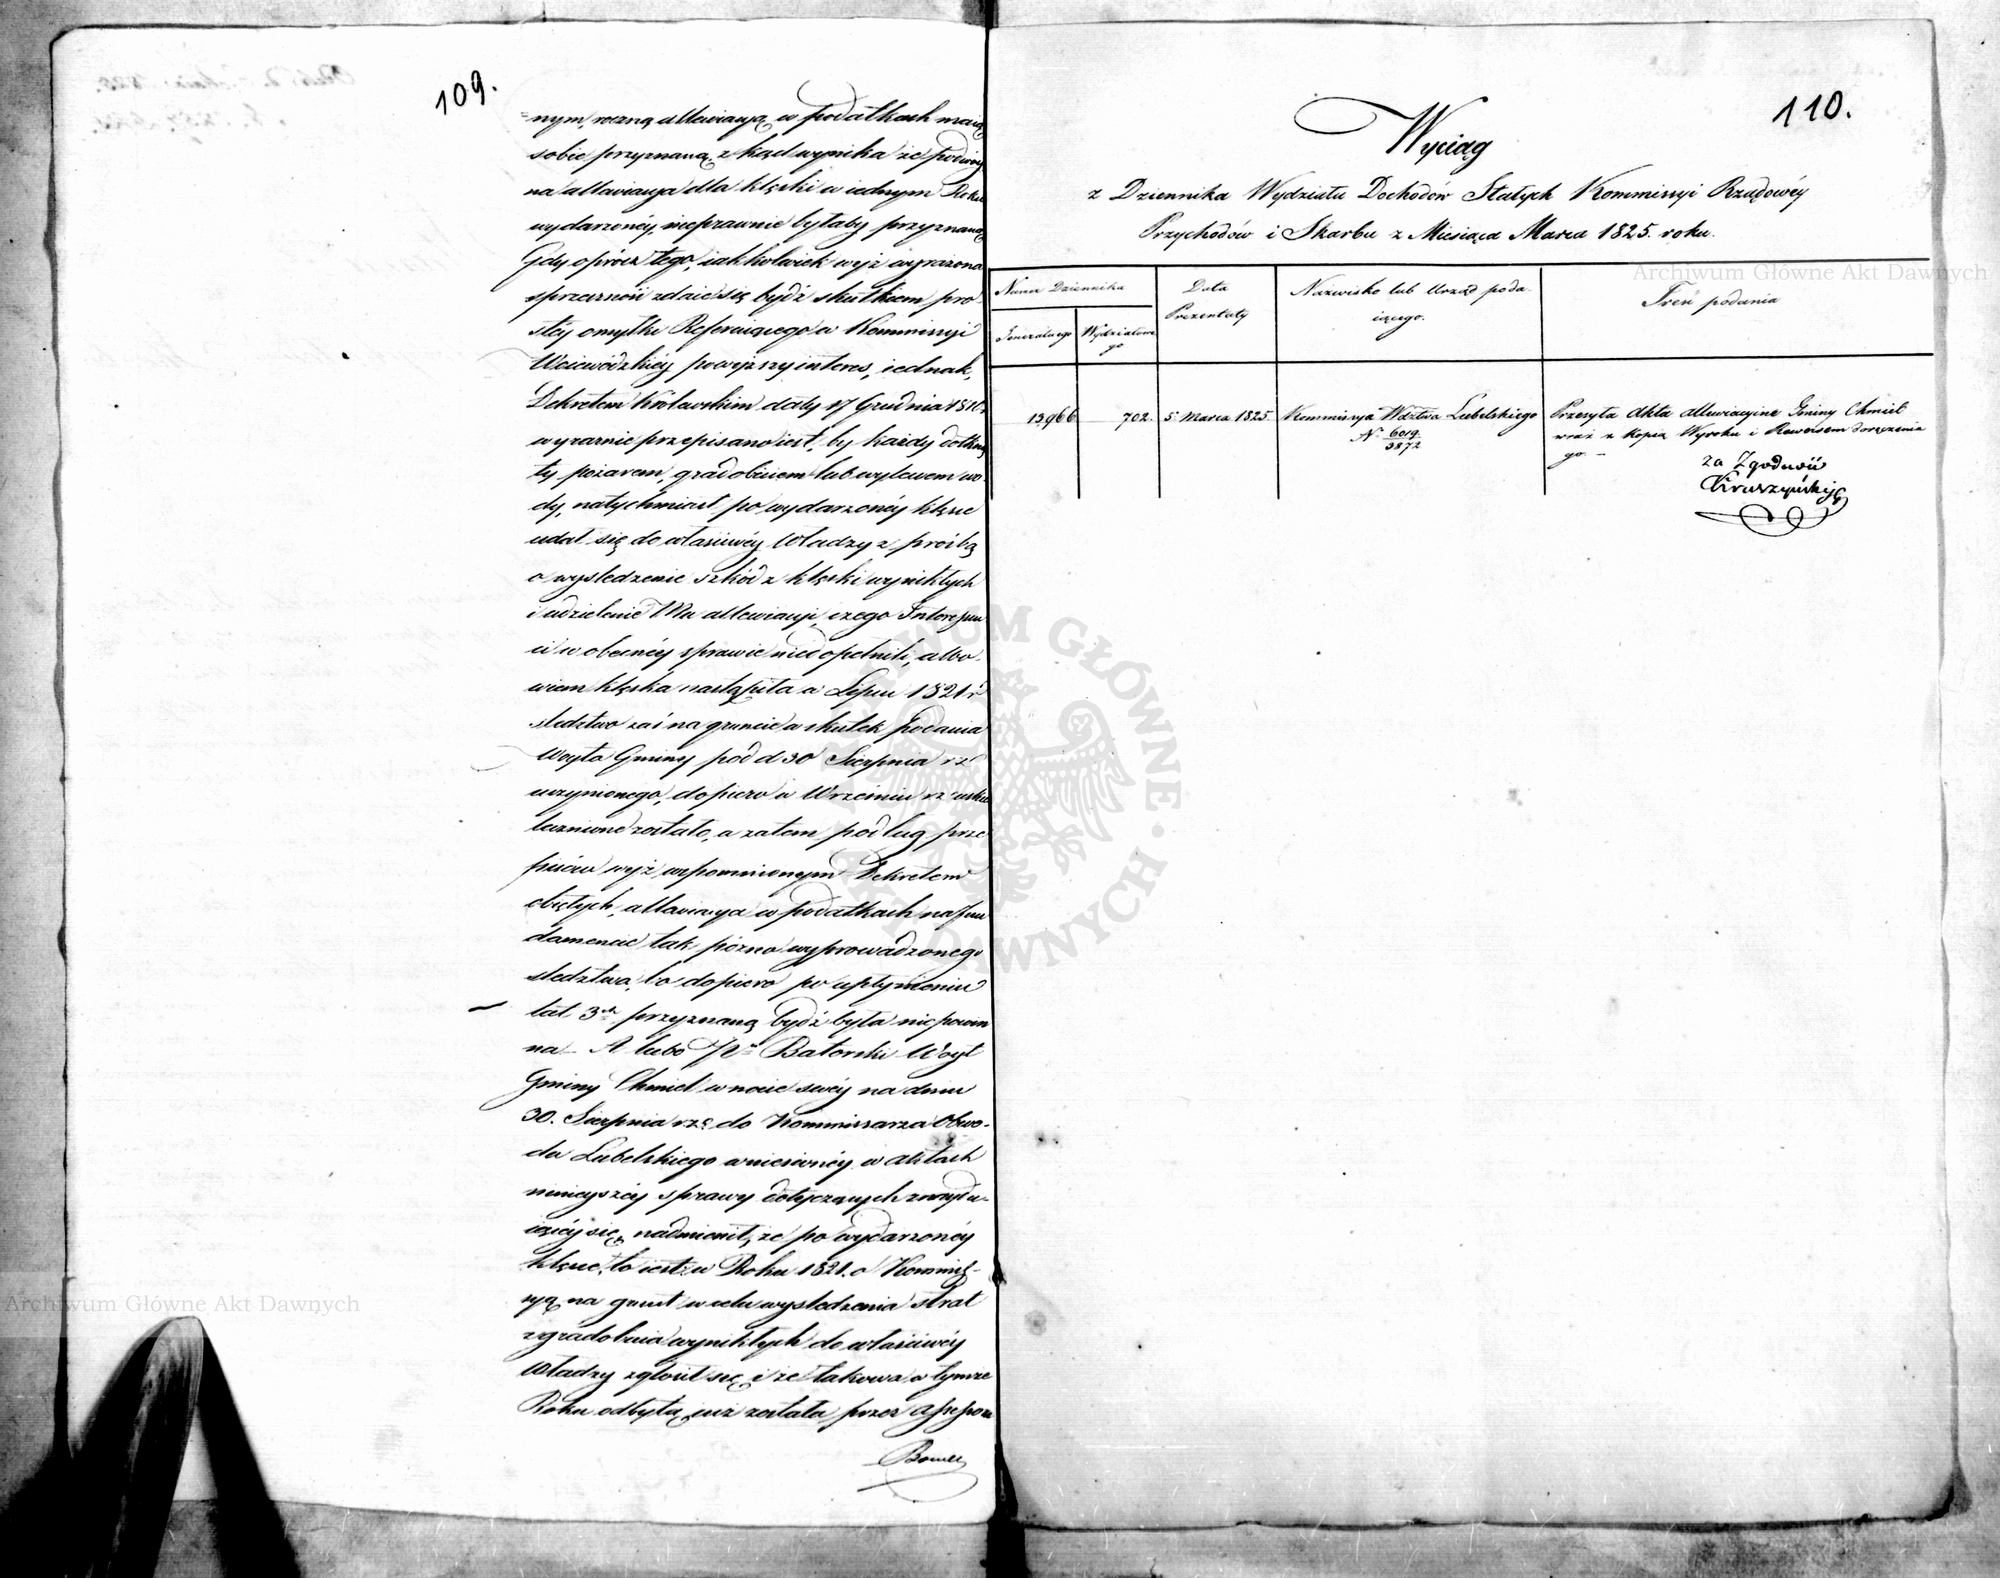 109.
nym, roczną allewiacyą w podatkach maią
sobie przyznaną, z kąd wynika że podwóy
na allewiacya dla klęski w iednym Roku
wydarzonéy, nieprawnie byłaby przyznaną
Gdy oprócz tego, iakkolwiek wyż wyrażona
sprzeczność zdaie się bydź skutkiem pro-
stéy omyłki Referuiącego w Kommissyi
Woiewódzkiéy powyższy interes, iednak,
Dekretem Królewskim daty 17 Grudnia 1816 r
wyraźnie przepisano iest, by każdy dotknię
ty pożarem, gradobiciem lub wylewem wo-
dy, natychmiast po wydarzonéy klęsce
udał się do właściwéy Władzy z prośbą
o wyśledzenie szkód z klęski wynikłych
i udzielenie Mu allewiacyi, czego Interessen
ci w obecnéy sprawie niedopełnili, albo-
wiem klęska nastąpiła w Lipcu 1821 r
śledztwo zaś na gruncie w skutek podania
Woyta Gminy pod d 30 Sierpnia r.z.
uczynionego, dopiero w Wrześniu r.z. usku
tecznione zostało, a zatem podług prze
pisów wyż wspomnionym Dekretem
obiętych, allewiacya w podatkach na fun
damencie tak późno wyprowadzonego
śledztwa, bo dopiero po upłynieniu
lat 3ch przyznaną bydź była niepowin
na. A lubo Batorski Woyt
Gminy Chmiel w nocie swéy na dniu
30. Sierpnia r.z. do Kommissarza Obwo-
du Lubelskiego wniesionéy, w aktach
ninieyszéy sprawy dotyczących znaydu-
iącéy się, nadmienił, że po wydarzonéy
klęsce, to iest w Roku 1821. o Kommis-
syą na grunt w celu wyśledzenia strat
z gradobicia wynikłych do właściwéy
Władzy zgłosił się, i że takowa w tymże
Roku odbytą iuż została przez Assessora
110.
Wyciąg
z Dziennika Wydziału Dochodów Stałych Kommissyi Rządowéy
Przychodów i Skarbu z Miesiąca Marca 1825. roku.
Numer Dziennika
Generalnego
Wydziałowe
go
Data
Prezentaty
Nazwisko lub Urząd poda-
iącego.
Treść podania
13,966
702.
5 Marca 1825
Kommissya Wdztwa Lubelskiego
N. 6019/3872
Przesyła Akta allewiacyine Gminy Chmiel
wraz z Kopią Wyroku i Rewersem doręczenia
go. —
za Zgodność
Archiwum Główne Akt Dawnych
ARCHIWUM GŁÓWNE AKT DAWNYCH
Archiwum Główne Akt Dawnych